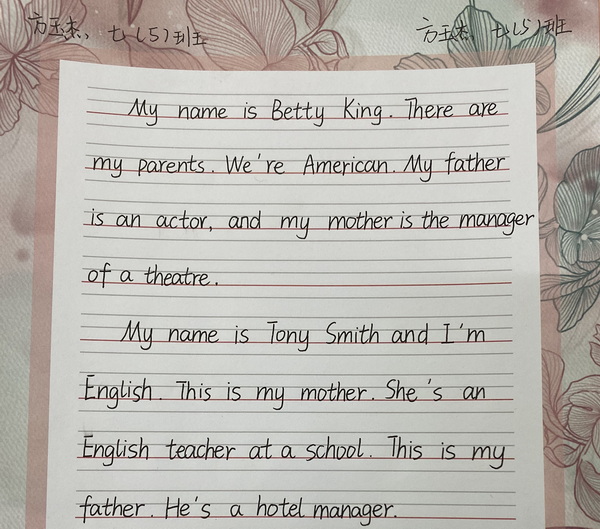 方玉杰、七(5)班 方玉杰、七(5)班
My name is Betty King. There are
my parents. We're American. My father
is an actor, and my mother is the manager
of a theatre.
My name is Tony Smith and I'm
English. This is my mother. She's an
English teacher at a school. This is my
father. He's a hotel manager.